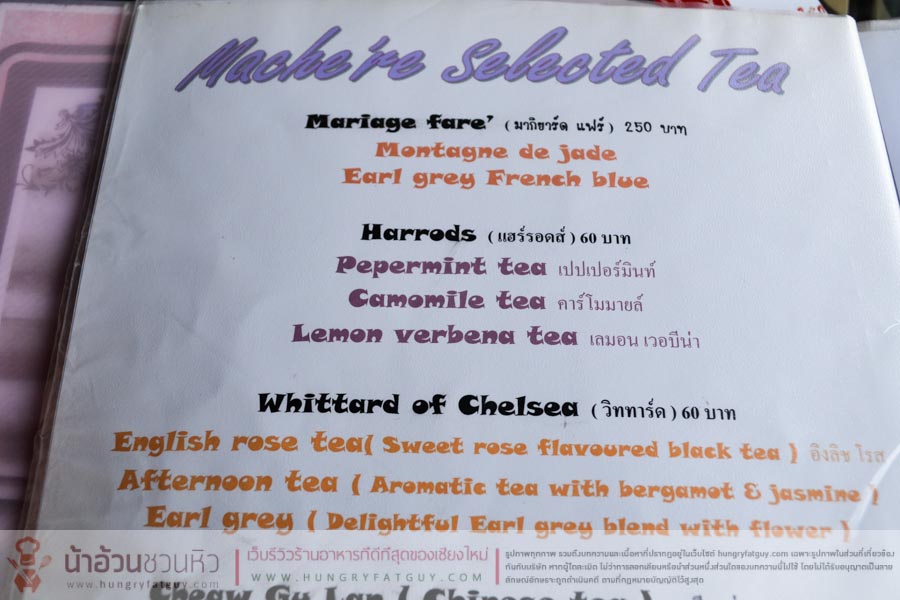 Mache're Selected Tea
Mariage fare' (มากิยาร์ด แฟร์) 250 บาท
Montagne de jade
Earl grey French blue
Harrods (แฮร์รอดส์) 60 บาท
Pepermint tea เปปเปอร์มินท์
Camomile tea คาร์โมมายล์
Lemon verbena tea เลมอน เวอบีน่า
Whittard of Chelsea (วิททาร์ด) 60 บาท
English rose tea( Sweet rose flavoured black tea ) อิงลิช โรส
Afternoon tea ( Aromatic tea with bergamot & jasmine )
Earl grey ( Delightful Earl grey blend with flower )
Cheaw Gu Lan ( Chinese tea )
น้าอ้วนชวนหิว
www.hungryfatguy.com
เว็บรีวิวร้านอาหารที่ดีที่สุดของเชียงใหม่
WWW.HUNGRYFATGUY.COM
รูปภาพทุกภาพ รวมถึงบทความและเนื้อหาที่ปรากฏอยู่ในเว็บไซต์ hungryfatguy.com เฉพาะรูปภาพในส่วนที่เกี่ยวข้อง
กันกับบริษัท หากผู้ใดละเมิด ไม่ว่าการลอกเลียนหรือนำส่วนหนึ่งส่วนใดของบทความนี้ไปใช้ โดยไม่ได้รับอนุญาตเป็นลาย
ลักษณ์อักษรจะถูกดำเนินคดี ตามที่กฏหมายบัญญัติไว้สูงสุด